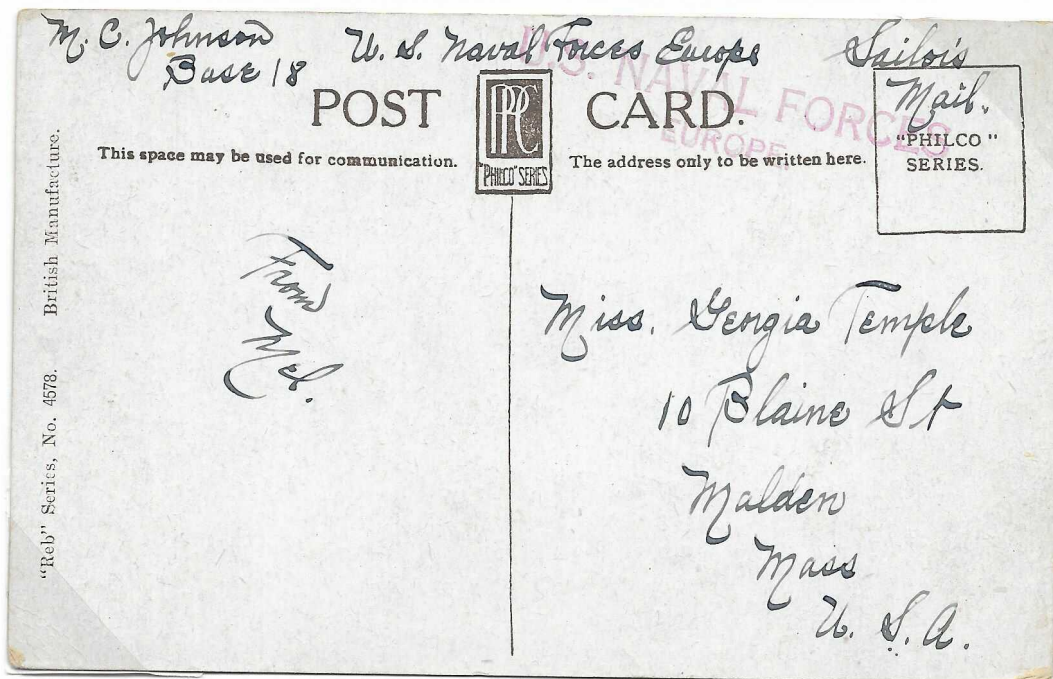 M. C. Johnson U. S. Naval Forces Europe Sailor's
Base 18 Mail.
U.S. NAVAL FORCES
EUROPE.
POST CARD.
"PHILCO" SERIES
"PHILCO"
SERIES.
This space may be used for communication.
The address only to be written here.
"Reb" Series, No. 4578. British Manufacture.
From
Mel.
Miss. Georgia Temple
10 Blaine St
Malden
Mass
U. S. A.